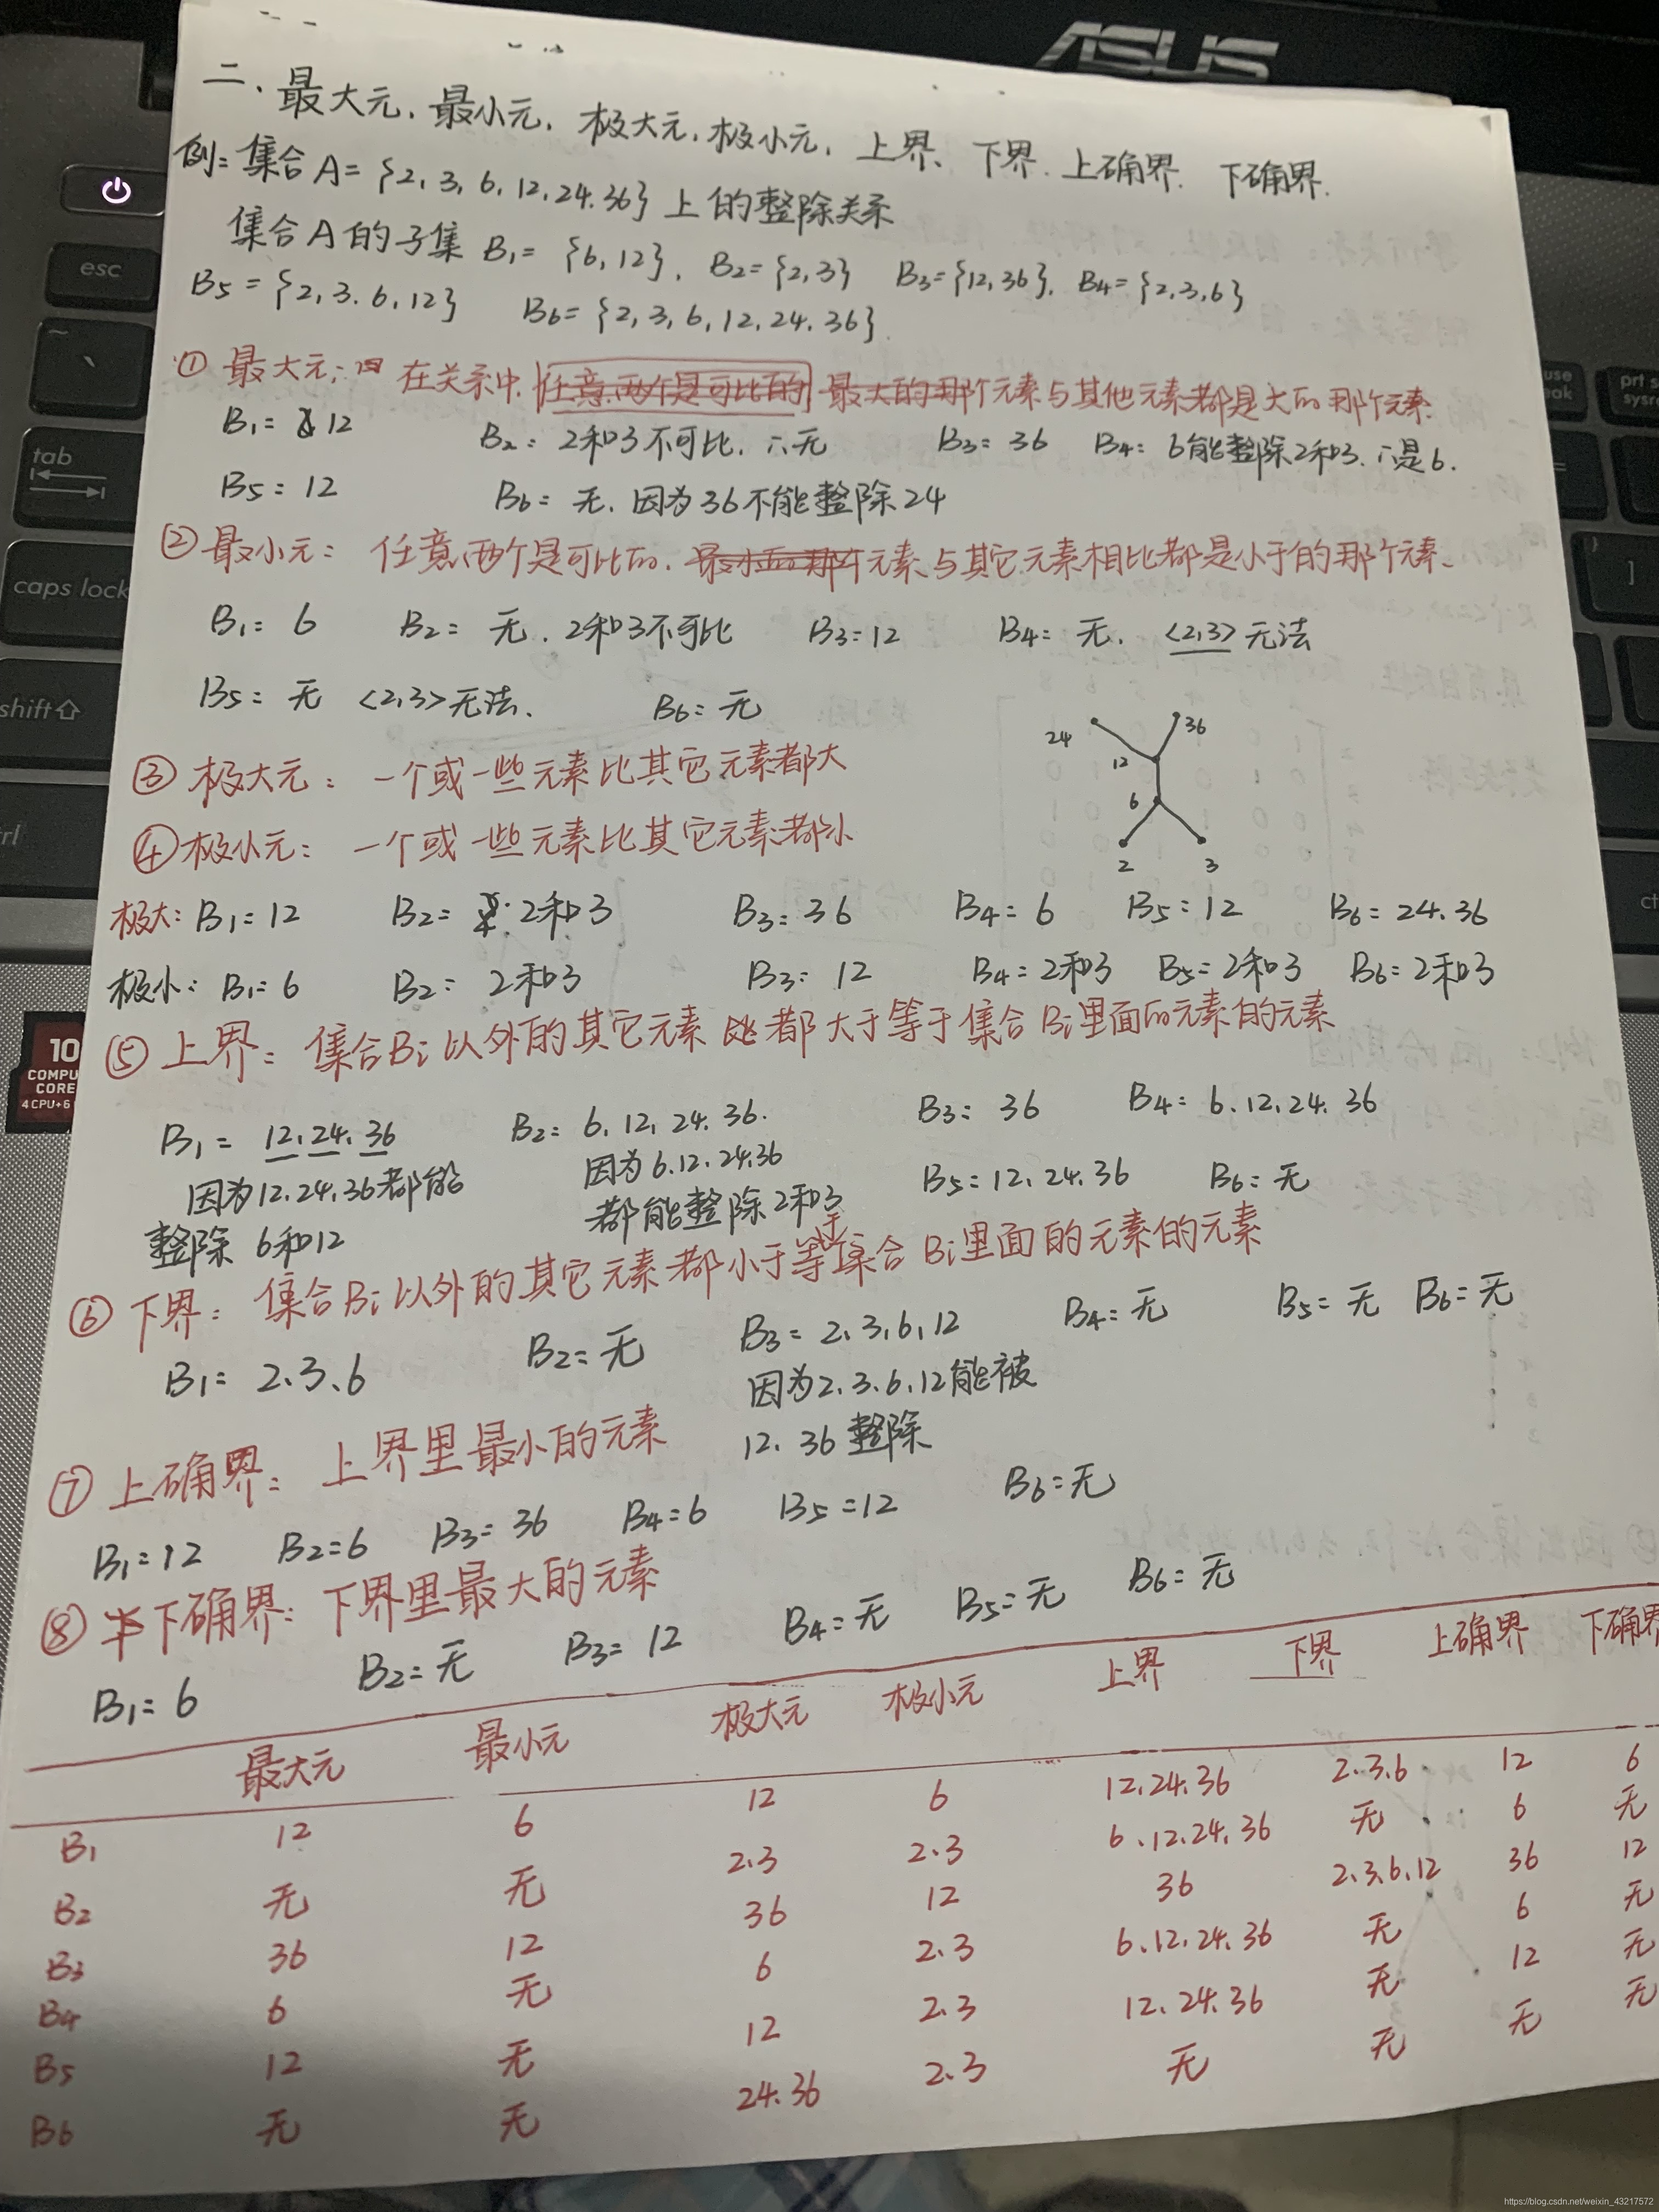 ASUS
二、最大元,最小元,极大元,极小元,上界、下界.上确界.下确界.
例:集合A={2,3,6,12,24.36}上的整除关系
集合A的子集 B1={6,12}, B2={2,3} B3={12,36}, B4={2,3,6}
B5={2,3.6,12} B6={2,3,6,12,24.36}
① 最大元: 在关系中,任意两个是可比的 最大的那个元素与其他元素都是大的那个元素.
B1=12 B2: 2和3不可比,∴无 B3=36 B4: 6能整除2和3.∴是6.
B5=12 B6=无,因为36不能整除24
② 最小元: 任意两个是可比的.最小的那个元素与其它元素相比都是小于的那个元素.
B1=6 B2=无.2和3不可比 B3=12 B4=无. <2,3>无法
B5=无 <2,3>无法. B6=无
24 36
12
6
2 3
③ 极大元: 一个或一些元素比其它元素都大
④ 极小元: 一个或一些元素比其它元素都小
极大: B1=12 B2= 2和3 B3=36 B4=6 B5=12 B6=24.36
极小: B1=6 B2=2和3 B3=12 B4=2和3 B5=2和3 B6=2和3
⑤ 上界: 集合Bi以外的其它元素 都大于等于集合Bi里面的元素的元素
B1=12.24.36 B2=6.12,24.36. B3=36 B4=6.12.24.36
因为12.24.36都能 因为6.12.24.36 B5=12.24.36 B6=无
整除6和12 都能整除2和3
⑥ 下界: 集合Bi以外的其它元素都小于等于集合Bi里面的元素的元素
B1=2.3、6 B2=无 B3=2、3,6,12 B4=无 B5=无 B6=无
因为2.3.6,12能被
12.36整除
⑦ 上确界: 上界里最小的元素
B1=12 B2=6 B3=36 B4=6 B5=12 B6=无
⑧ 下确界: 下界里最大的元素
B1=6 B2=无 B3=12 B4=无 B5=无 B6=无
最大元 最小元 极大元 极小元 上界 下界 上确界 下确界
B1 12 6 12 6 12.24.36 2.3.6 12 6
B2 无 无 2.3 2.3 6.12.24.36 无 6 无
B3 36 12 36 12 36 2.3,6,12 36 12
B4 6 无 6 2.3 6.12.24.36 无 6 无
B5 12 无 12 2.3 12.24.36 无 12 无
B6 无 无 24.36 2.3 无 无 无 无
esc
tab
caps lock
shift
10
COMPU
CORE
4 CPU+6
prt s
sysr
https://blog.csdn.net/weixin_43217572